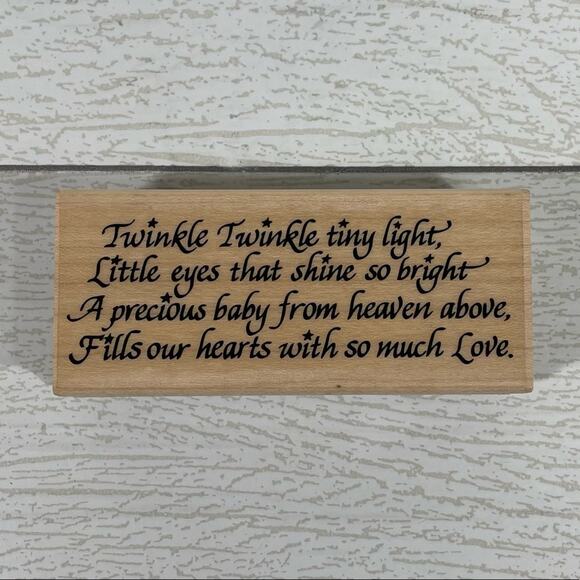 Twinkle Twinkle tiny light,
Little eyes that shine so bright
A precious baby from heaven above,
Fills our hearts with so much Love.